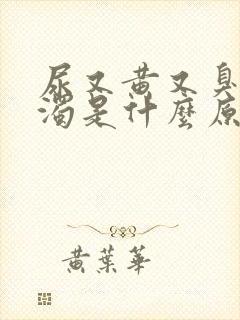 尿又黃又臭
濁是什麼原
黃葉華